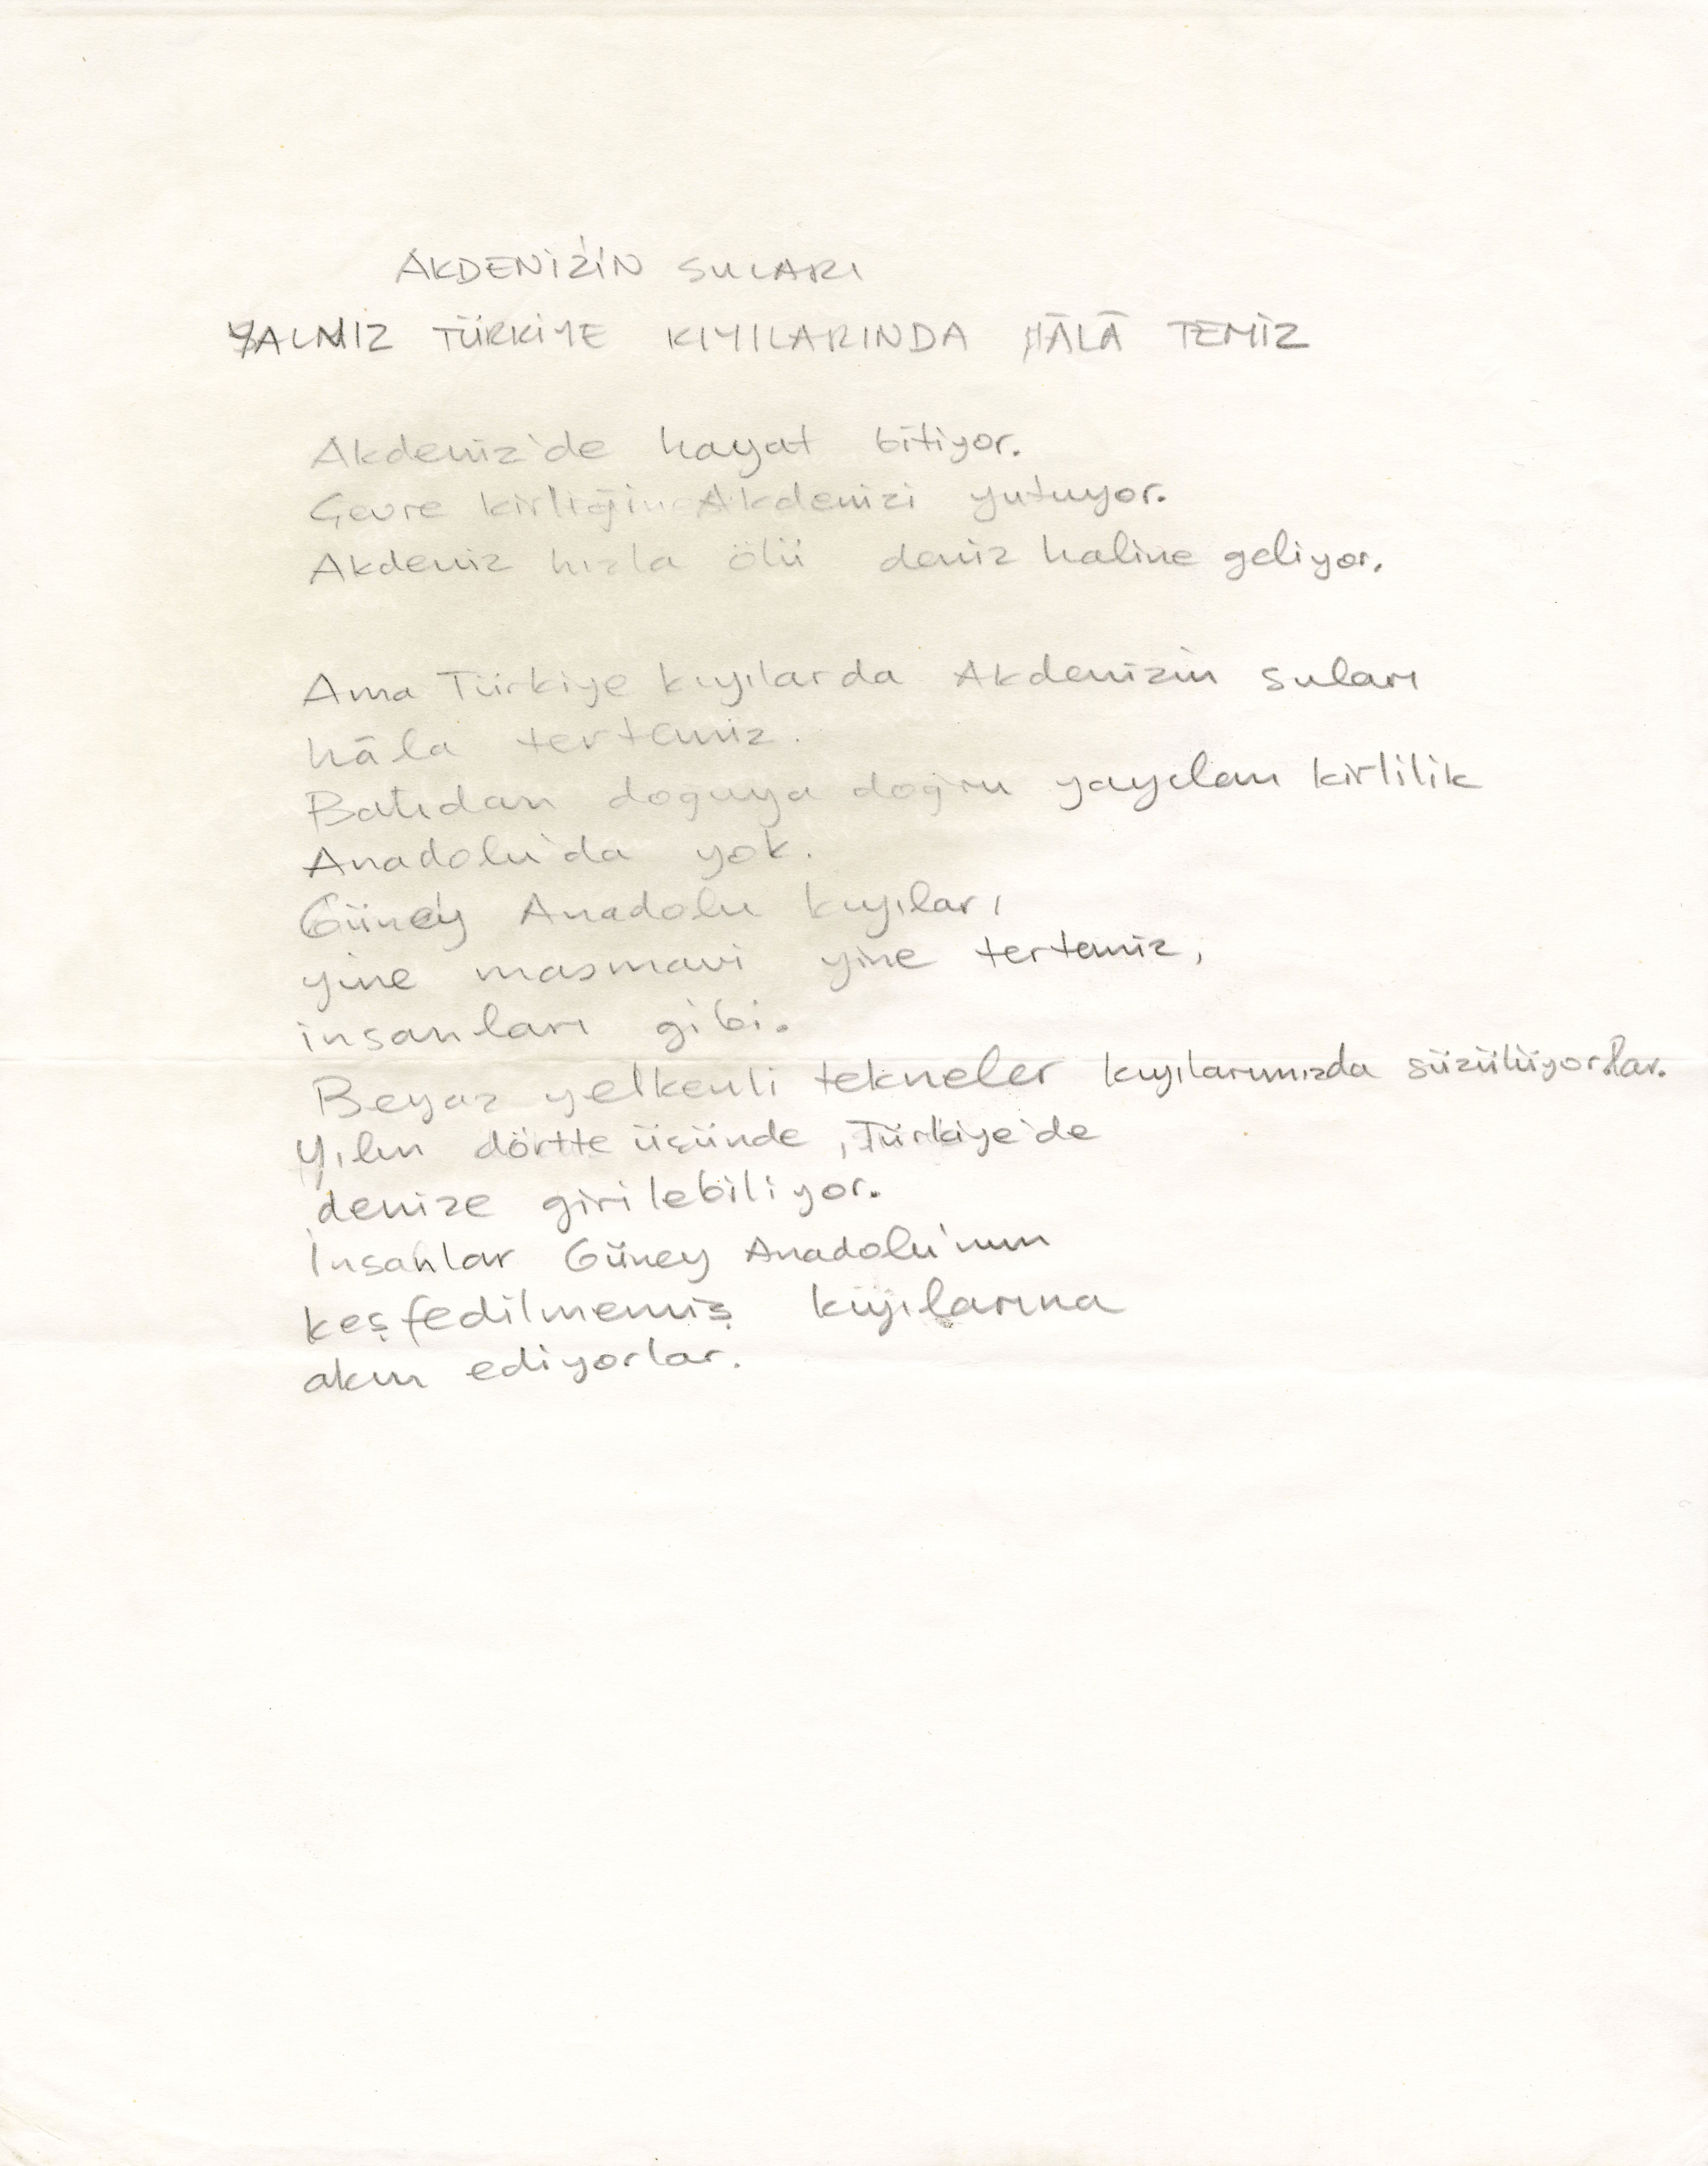 AKDENİZ'İN SULARI
YALNIZ TÜRKİYE KIYILARINDA HÂLÂ TEMİZ
Akdeniz'de hayat bitiyor.
Çevre Akdenizi yutuyor.
Akdeniz hızla ölü deniz haline geliyor.
Ama Türkiye kıyılarda Akdenizin suları
hâla tertemiz.
Batıdan doğuya doğru yayılan kirlilik
Anadolu'da yok.
Güney Anadolu kıyıları
yine masmavi yine tertemiz,
insanları gibi.
Beyaz yelkenli tekneler kıyılarımızda süzülüyorlar.
Yılın dörtte üçünde, Türkiye'de
denize girilebiliyor.
İnsanlar Güney Anadolu'nun
keşfedilmemiş kıyılarına
akın ediyorlar.